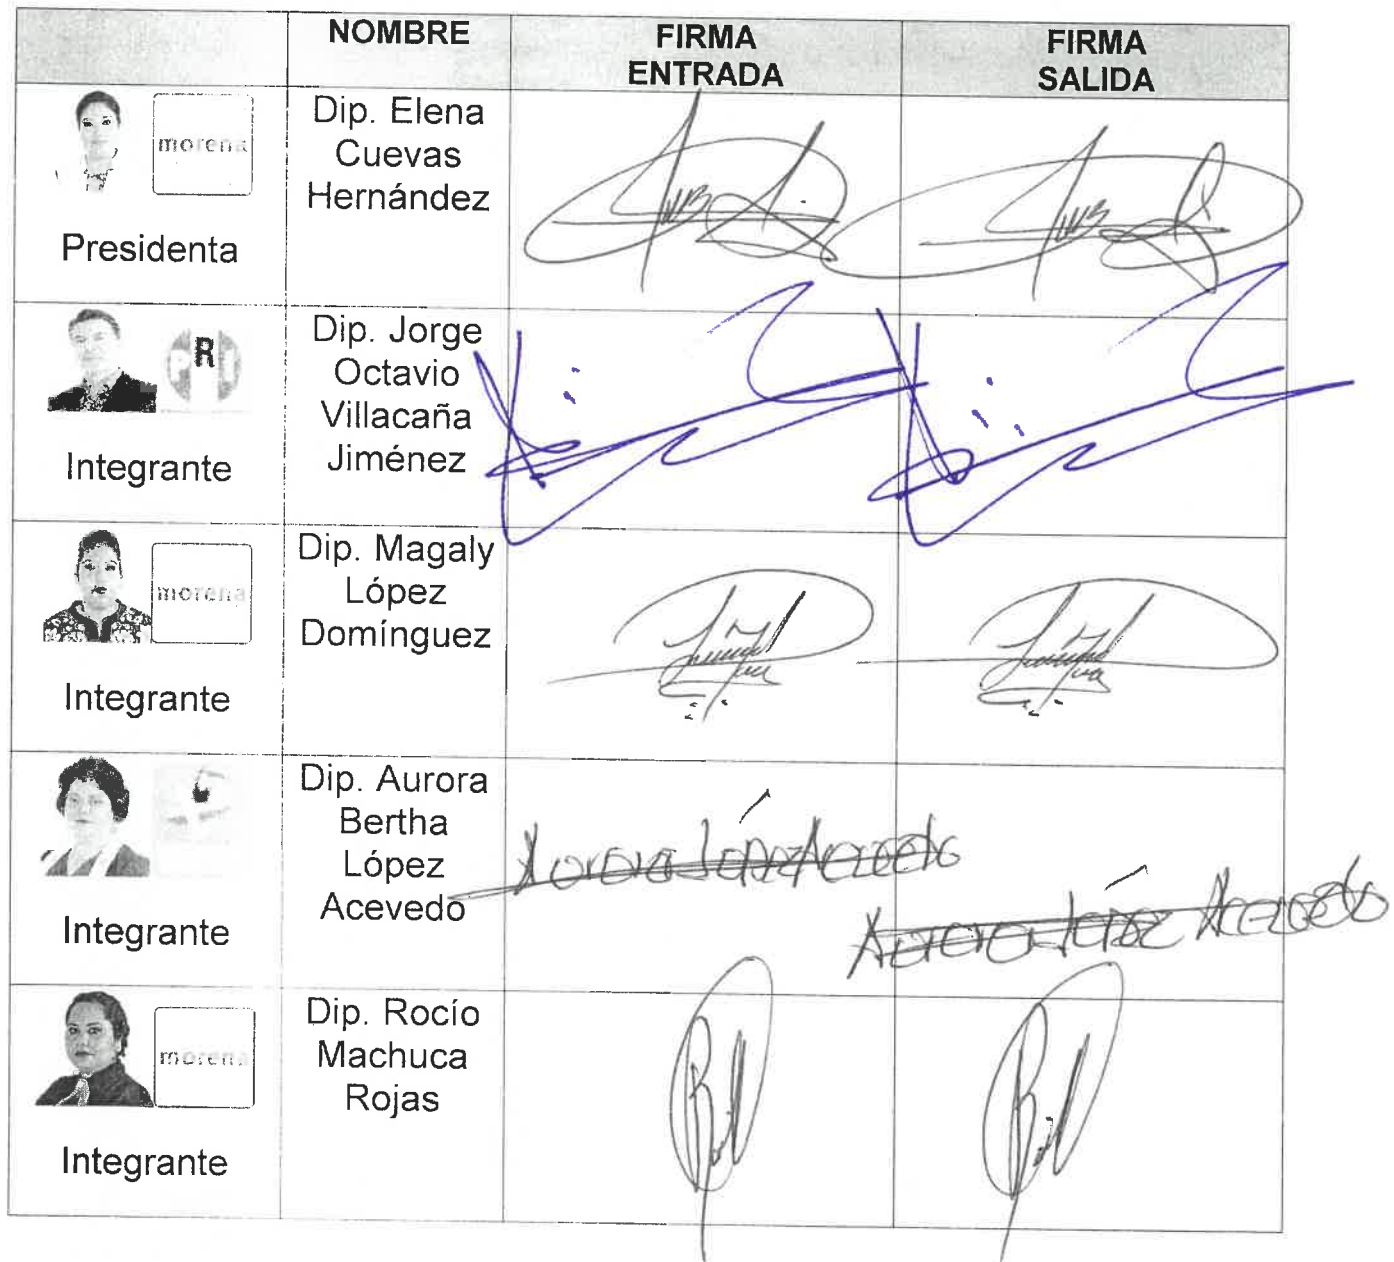 NOMBRE
FIRMA
ENTRADA
FIRMA
SALIDA
morena
Presidenta
Dip. Elena
Cuevas
Hernández
PRI
Integrante
Dip. Jorge
Octavio
Villacaña
Jiménez
morena
Integrante
Dip. Magaly
López
Domínguez
Integrante
Dip. Aurora
Bertha
López
Acevedo
Aurora López Acevedo
Aurora López Acevedo
morena
Integrante
Dip. Rocío
Machuca
Rojas